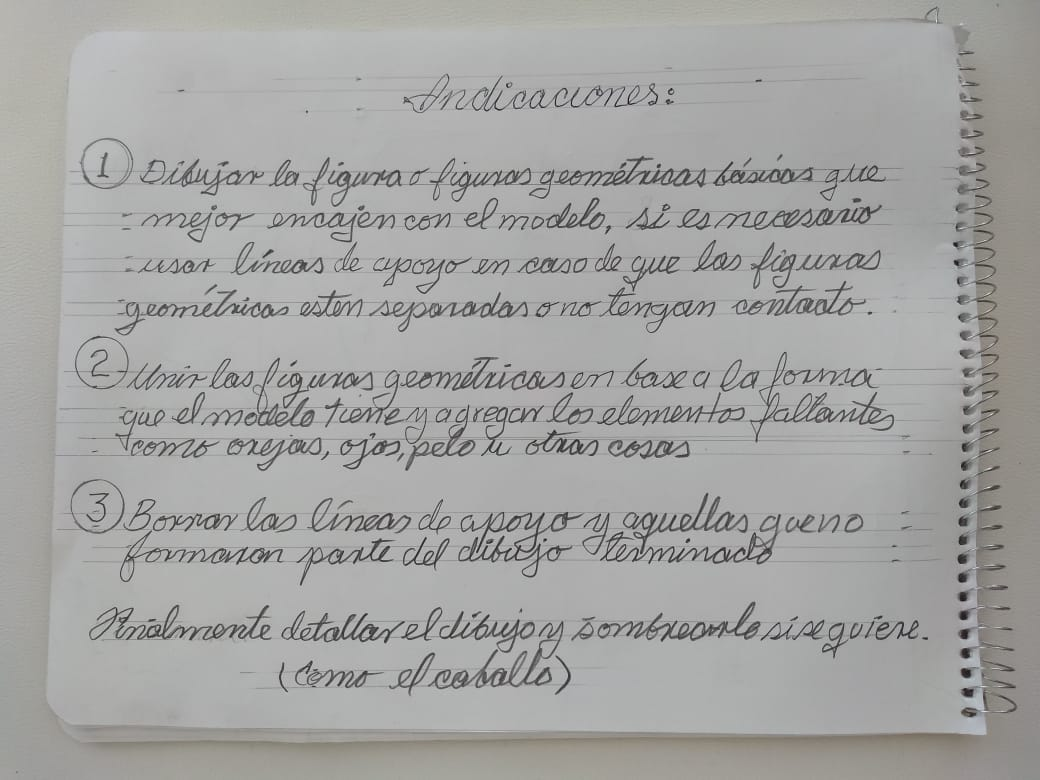 Indicaciones:
1 Dibujar la figura o figuras geométricas básicas que
mejor encajen con el modelo, si es necesario
usar líneas de apoyo en caso de que las figuras
geométricas esten separadas o no tengan contacto.
2 Unir las figuras geométricas en base a la forma
que el modelo tiene y agregar los elementos faltantes
como orejas, ojos, pelo u otras cosas
3 Borrar las líneas de apoyo y aquellas que no
formaron parte del dibujo terminado
Finalmente detallar el dibujo y sombrearlo si se quiere.
(Como el caballo)